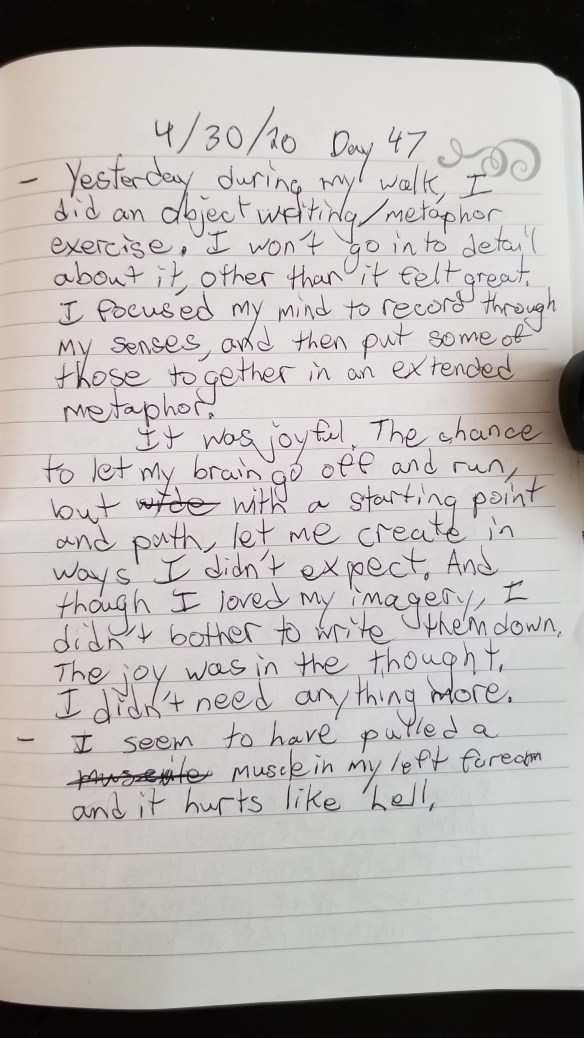 4/30/20 Day 47
- Yesterday during my walk, I
did an object writing/metaphor
exercise. I won't go in to detail
about it, other than it felt great.
I focused my mind to record through
my senses, and then put some of
those together in an extended
metaphor.
It was joyful. The chance
to let my brain go off and run,
but wide with a starting point
and path, let me create in
ways I didn't expect. And
though I loved my imagery, I
didn't bother to write them down.
The joy was in the thought.
I didn't need anything more.
- I seem to have pulled a
muscle in my left forearm
and it hurts like hell.